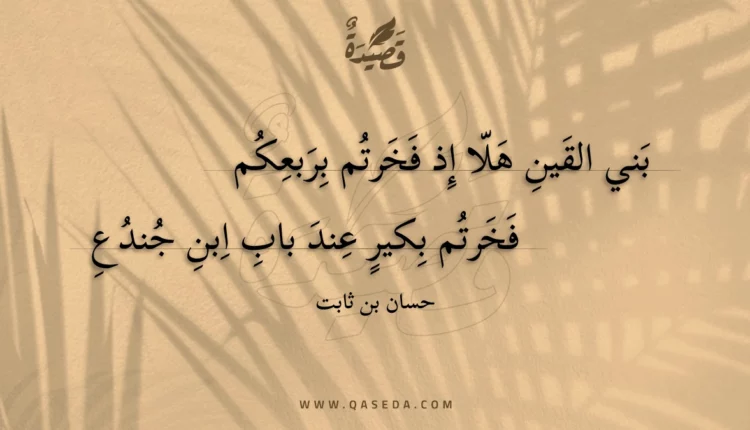 قَصِيدَةٌ
بَني القَينِ هَلّا إِذ فَخَرتُم بِرَبعِكُم
فَخَرتُم بِكيرٍ عِندَ بابِ اِبنِ جُندُعِ
حسان بن ثابت
WWW.QASEDA.COM